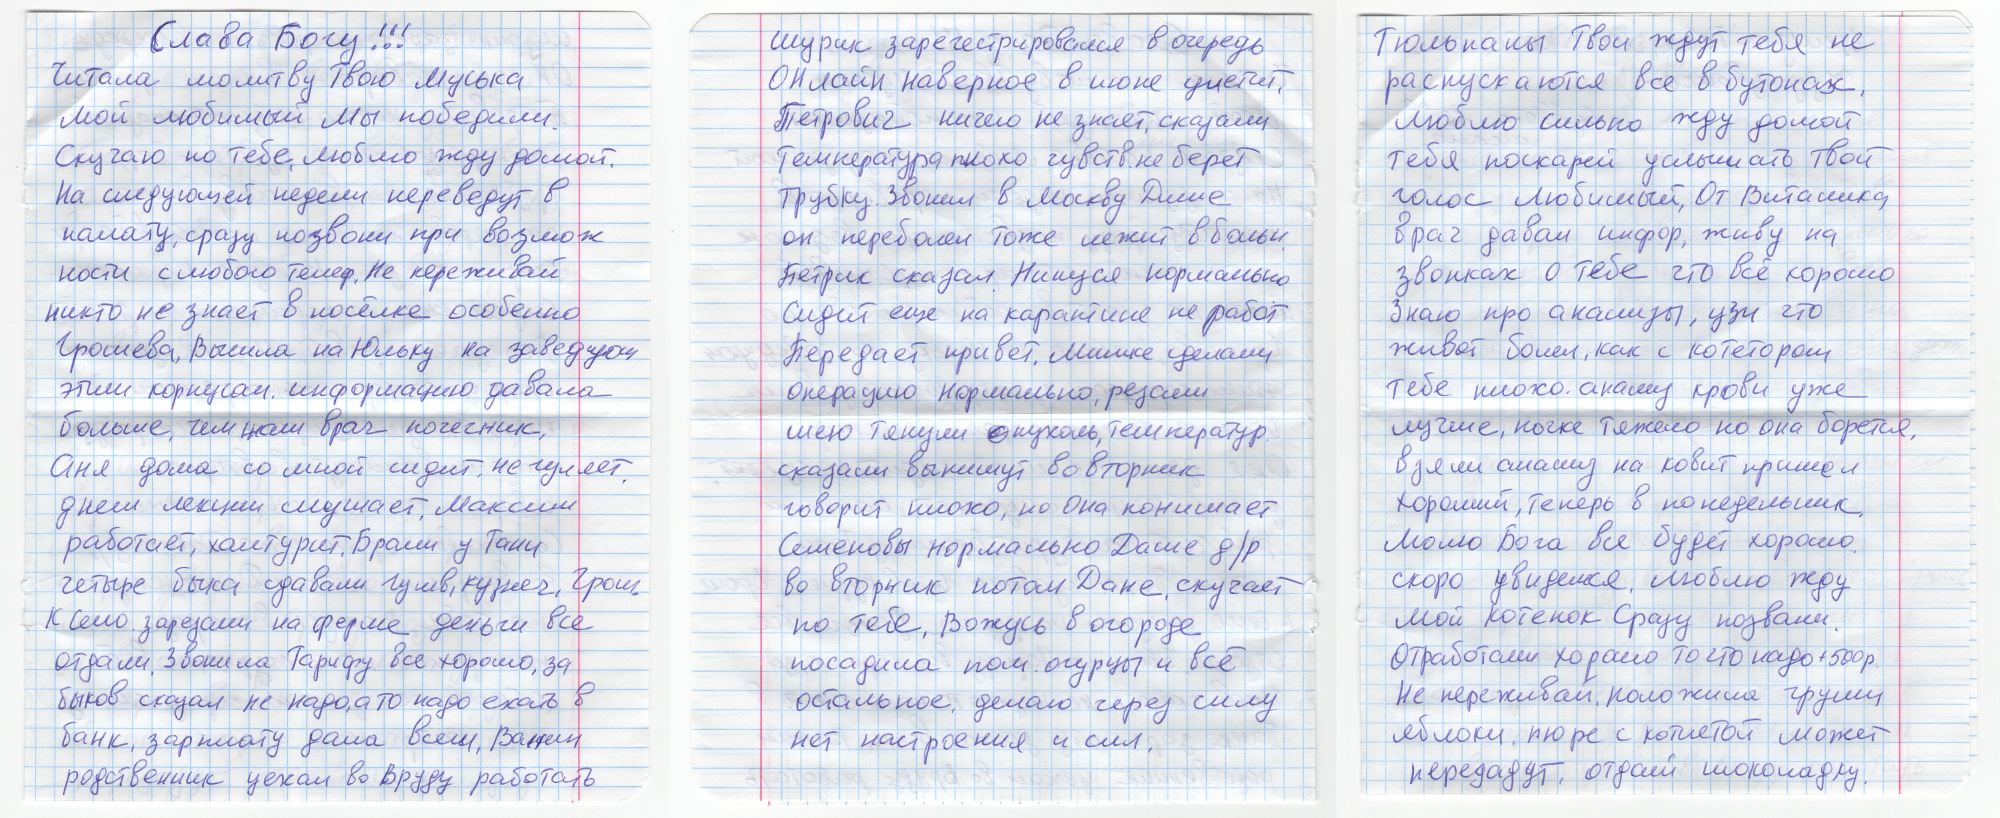 Слава Богу!!!
Читала молитву Твою Муська
Мой любимый Мы победили.
Скучаю по тебе, люблю жду домой.
На следующей недели переведут в
палату, сразу позвони при возмож
ности с любого телеф. Не переживай
никто не знает в посёлке особенно
Грошева, Вышла на Юльку на заведующ
этим корпусом. информацию давала
больше, чем наш врач
Аня дома со мной сидит, не гуляет,
днем лекции слушает, Максим
работает, халтурит. Брали у Тани
четыре быка сдавали Гумв, кузнеч, Грош.
К Село. зарезали на ферме деньги все
отдали. Звонила Тарифу все хорошо, за
быков сказал не надо, а то надо ехать в
банк, зарплату дала всем, Ванин
родственник уехал во Вруду работать
Шурик зарегестрировался в очередь
ОНлайн наверное в июне улетит.
Петрович ничего не знает, сказали
температура плохо чувств. не берет
трубку. Звонил в Москву Диме
он переболел тоже лежит в больн.
Петрик сказал. Нинуся нормально
сидит еще на карантине не работ
Передает привет. Мишке сделали
операцию нормально, резали
шею тянули опухоль, температур.
сказали выпишут во вторник
говорит плохо, но Она понимает
Семеновы нормально Даше д/р
во вторник потом Дане, скучает
по тебе, Вожусь в огороде
посадила пом. огурцы и всё
остальное, делаю через силу
нет настроения и сил.
Тюльпаны Твои ждут тебя не
распускаются все в бутонах.
Люблю сильно жду домой
тебя поскарей услышать твой
голос Любимый, От Виталика
врач давал инфор, живу на
звонках о тебе что всё хорошо
Знаю про анализы, узи что
живот болел, как с котетором
тебе плохо. анализ крови уже
лучше, почке тяжело но она борется,
взяли анализ на ковит пришел
хороший, теперь в понедельник.
Молю Бога все будет хорошо.
скоро увидемся, люблю жду
мой котенок Сразу позвони.
Отработали хорошо то что надо +500р.
Не переживай, положила груши
яблоки, пюре с котлетой может
передадут, отдай шоколадку.